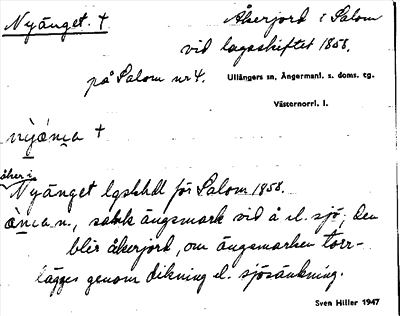 Nyänget +
Åkerjord i Salom
vid lagaskiftet 1858.
på Salom nr 4.
Ullångers sn, Ångermanl. s. doms. tg.
Västernorrl. l.
+
åker i
Nyänget lgsk.hdl för Salom 1858.
n., sank ängsmark vid å el. sjö; den
blir åkerjord, om ängsmarken torr-
lägges genom dikning el. sjösänkning.
Sven Hiller 1947